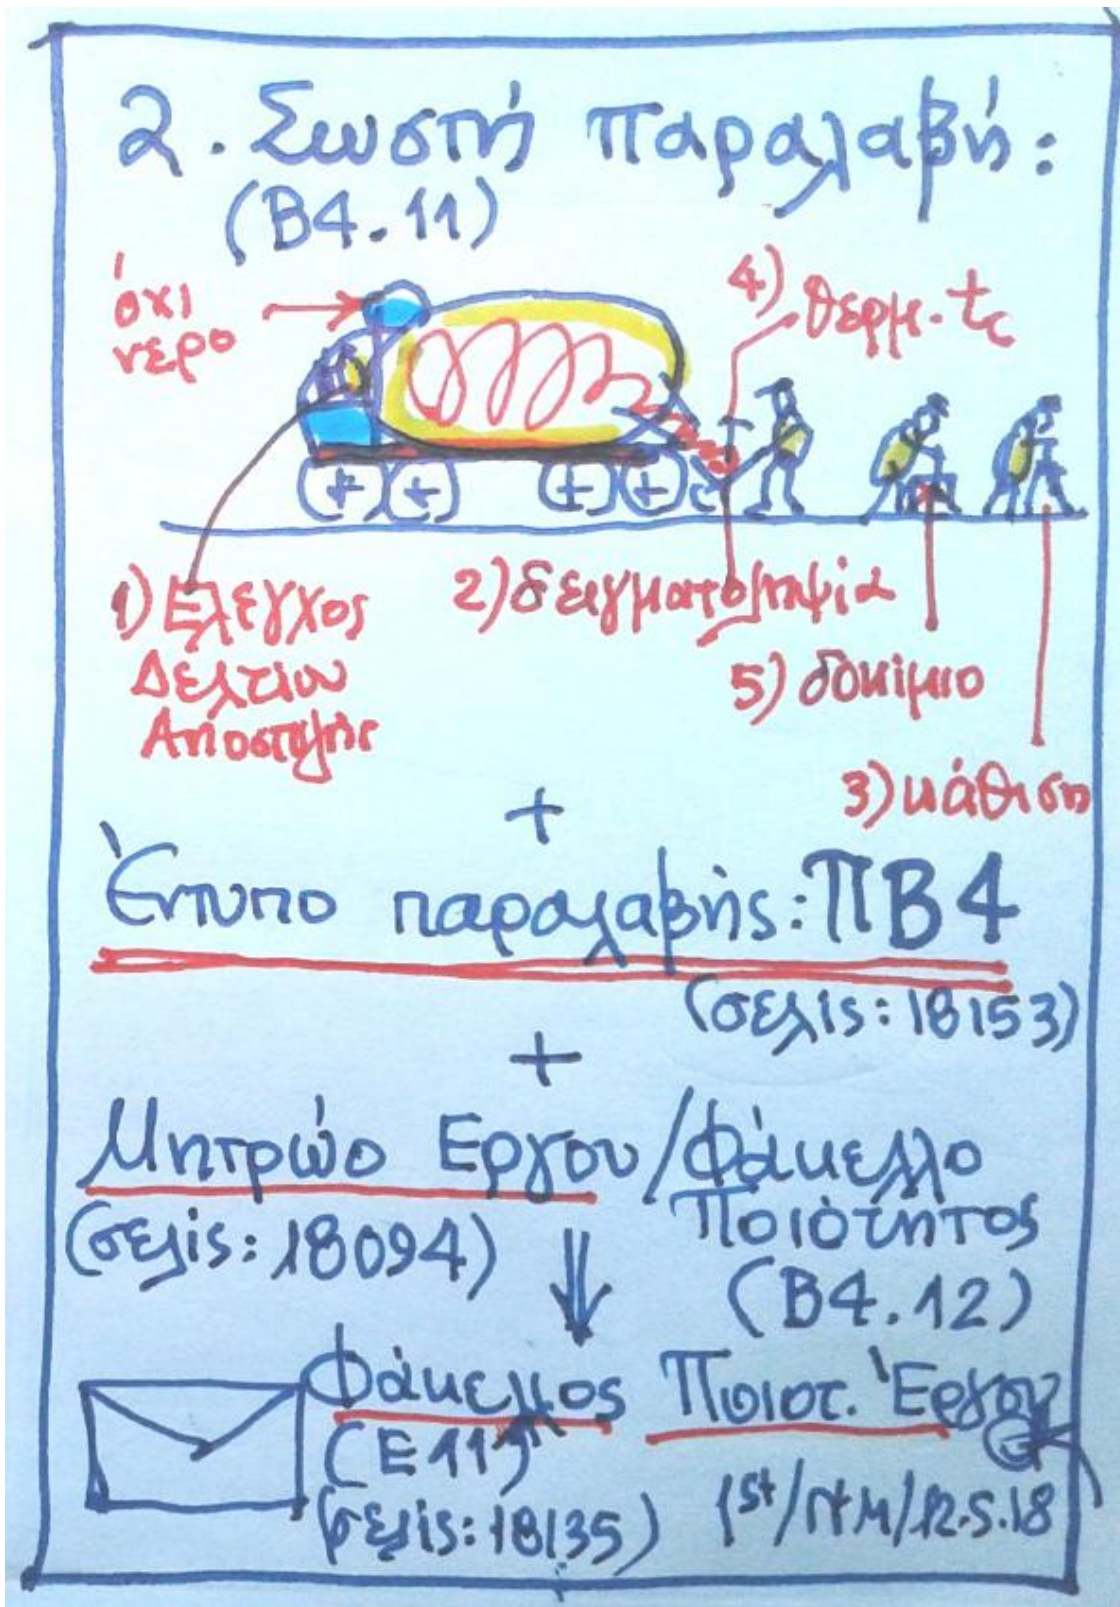 2. Σωστή παραλαβή:
(Β4.11)
όχι
νερο
4) θερμ. tc
1) Ελεγχος
Δελτιου
Αποστολής
2) δειγματοληψία
5) δοκίμιο
3) κάθιση
+
Έντυπο παραλαβής: ΠΒ4
(σελίς: 18153)
+
Μητρώο Εργου/Φάκελλο
Ποιότητος
(σελίς: 18094)
(Β4.12)
Φάκελλος Ποιοτ. Έργου
(Ε11)
(σελίς: 18135)
12.5.18